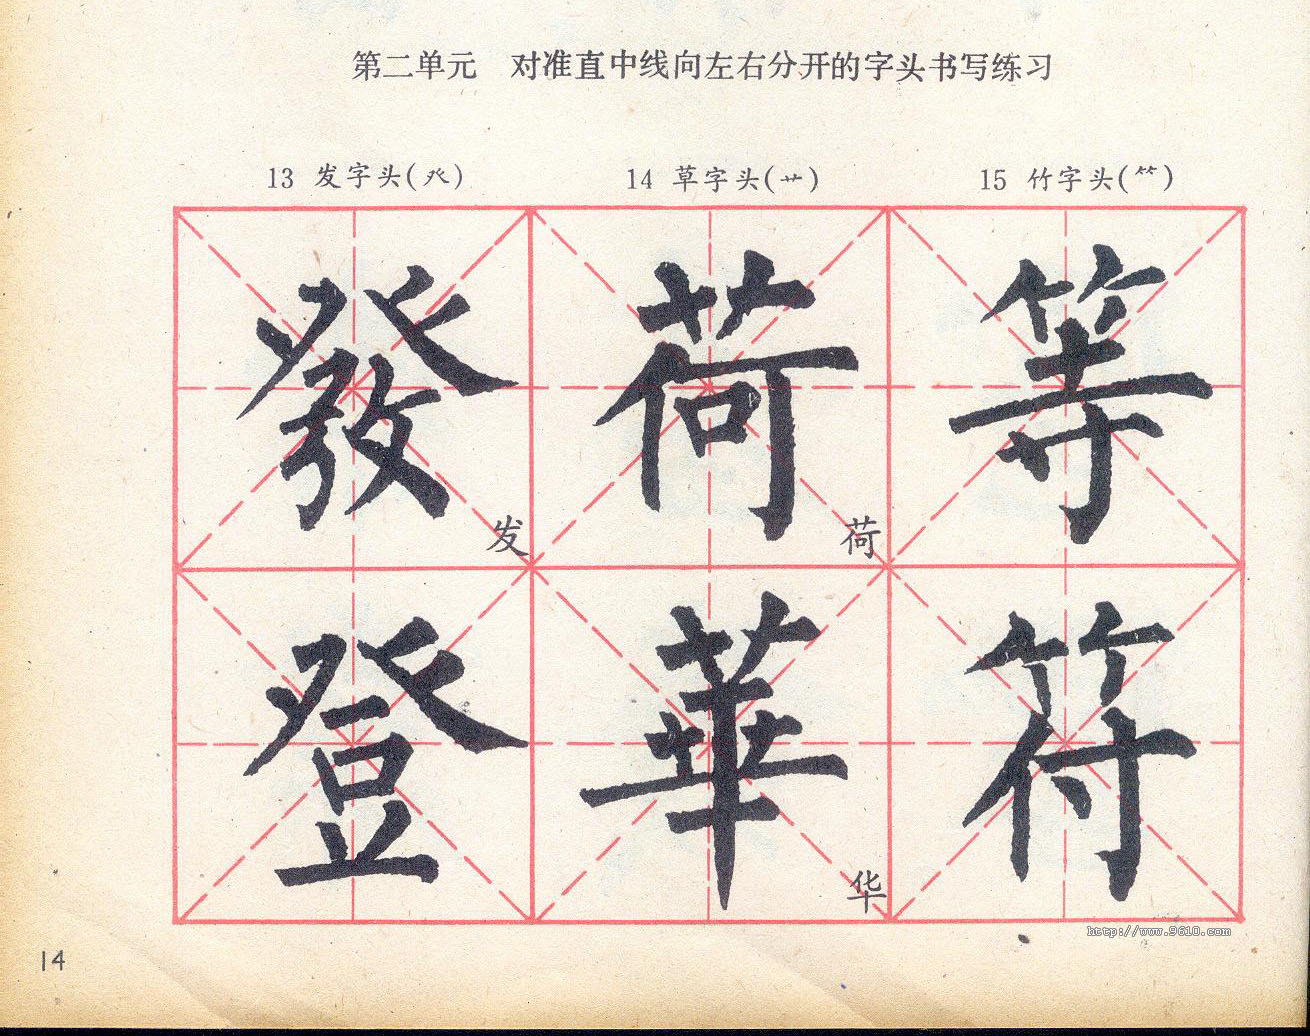 第二单元 对准直中线向左右分开的字头书写练习
13 发字头(癶) 14 草字头(艹) 15 竹字头(⺮)
發 荷 等
发 荷
登 華 符
华
http://www.9610.com
14